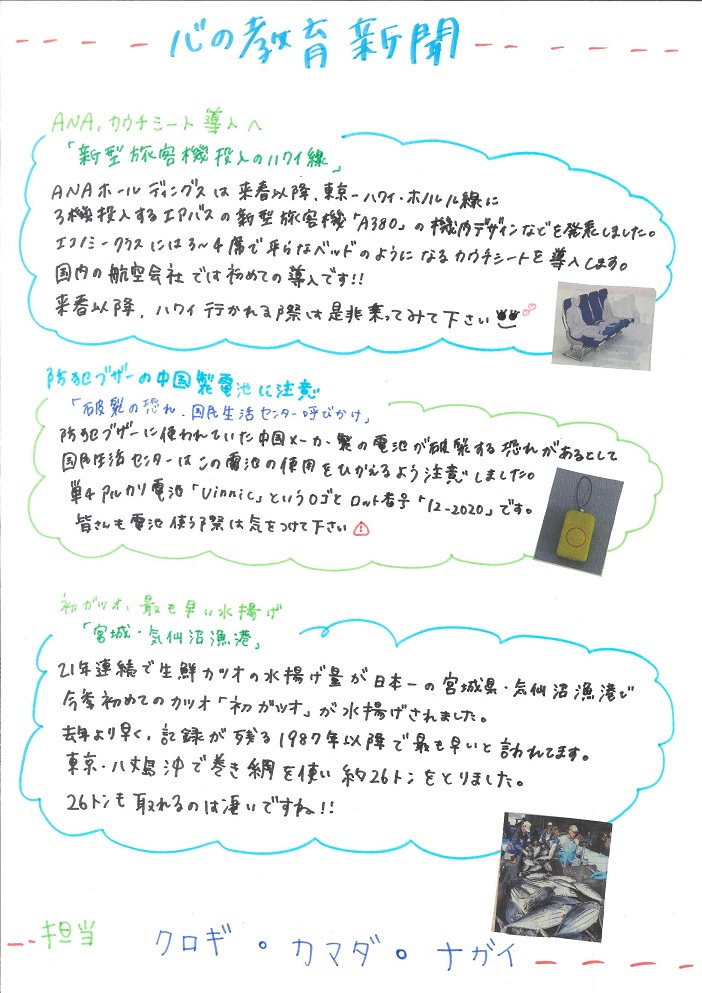 心の教育新聞
ANA、カウチシート導入へ
「新型旅客機投入のハワイ線」
ANAホールディングスは来春以降、東京ーハワイ・ホノルル線に
3機投入するエアバスの新型旅客機「A380」の機内デザインなどを発表しました。
エコノミークラスには3〜4席で平らなベッドのようになるカウチシートを導入します。
国内の航空会社では初めての導入です!!
来春以降、ハワイ行かれる際は是非乗ってみて下さい
防犯ブザーの中国製電池に注意
「破裂の恐れ、国民生活センター呼びかけ」
防犯ブザーに使われていた中国メーカー製の電池が破裂する恐れがあるとして
国民生活センターはこの電池の使用をひかえるよう注意しました。
単4アルカリ電池「Vinnic」というロゴとロット番号「12-2020」です。
皆さんも電池使う際は気をつけて下さい
初ガツオ、最も早い水揚げ
「宮城・気仙沼漁港」
21年連続で生鮮カツオの水揚げ量が日本一の宮城県・気仙沼漁港で
今季初めてのカツオ「初ガツオ」が水揚げされました。
去年より早く、記録が残る1987年以降で最も早いと言われてます。
東京・八丈島沖で巻き網を使い約26トンをとりました。
26トンも取れるのは凄いですね!!
担当 クロギ。カマダ。ナガイ